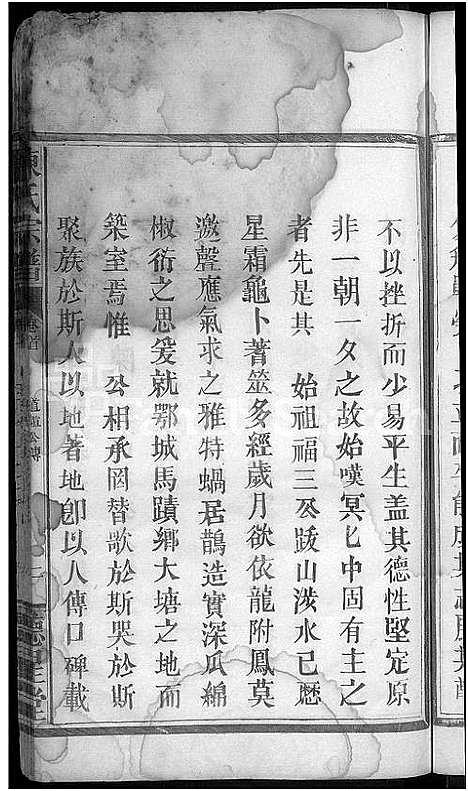 不以挫折而少易平生盖其德性堅定原
非一朝一夕之故始嘆冥七中固有主之
者先是其 始祖福三公跋山涉水已歷
星霜龜卜蓍筮多經歲月欲依龍附鳳莫
邀聲應氣求之雅特蝸居鵲造實深瓜綿
椒衍之思爰就鄂城馬蹟鄉大塘之地而
築室焉惟 公相承罔替歌於斯哭於斯
聚族於斯人以地著地卽以人傳口碑載
陳氏宗譜 卷首